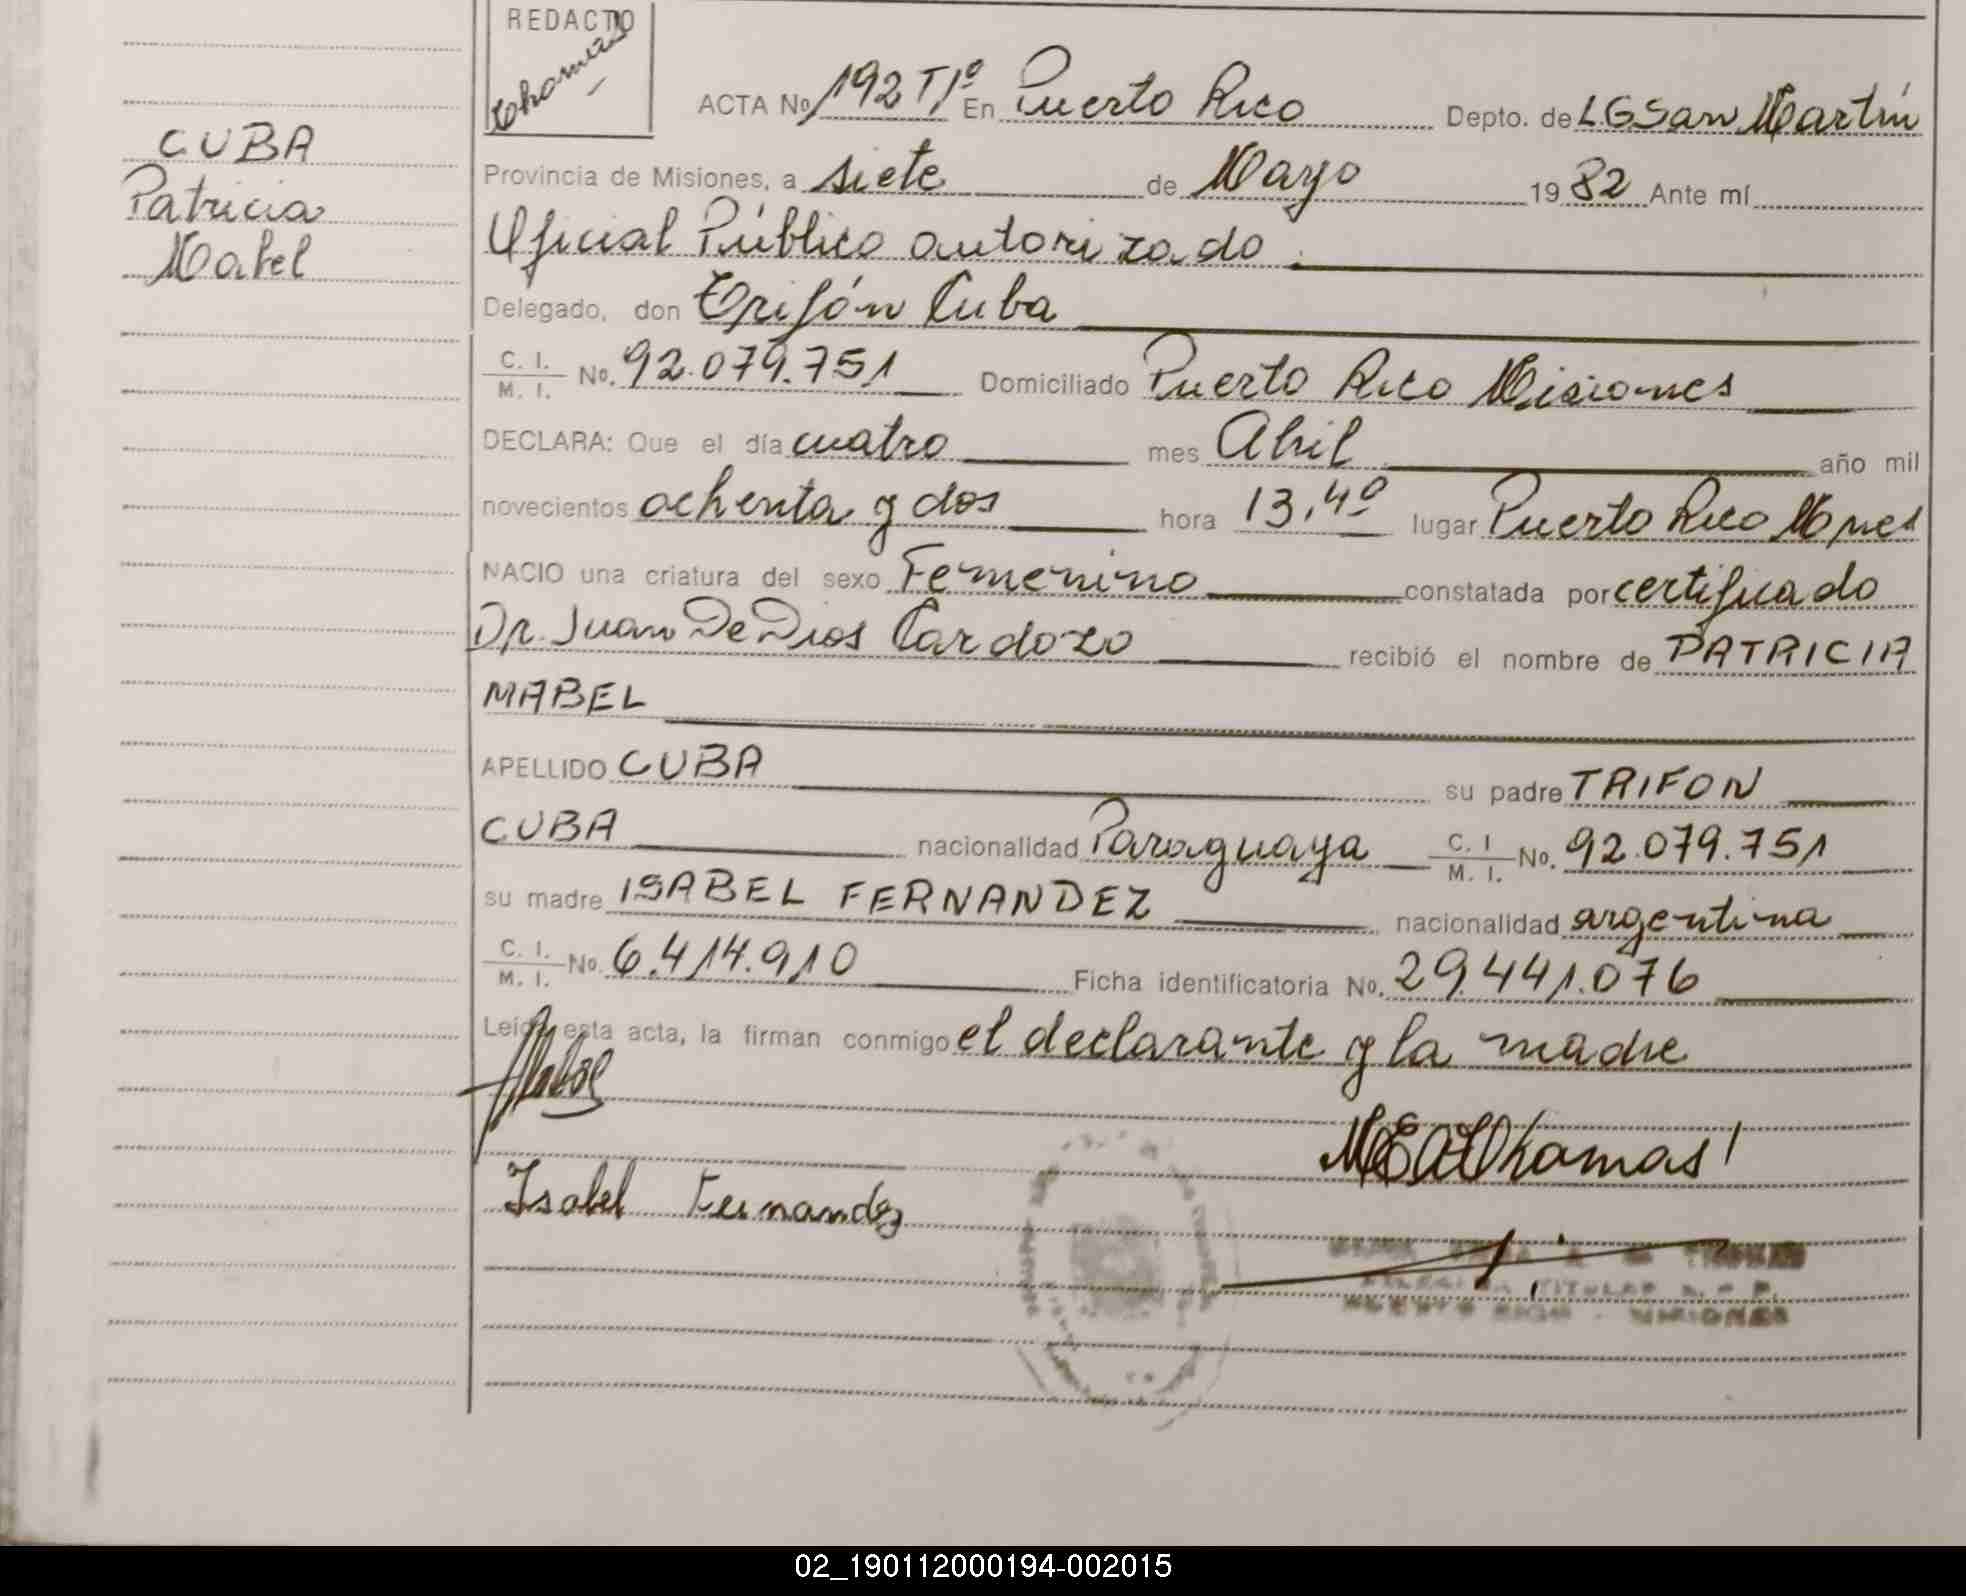 REDACTO
ACTA Nº 192 Tº 1º En Puerto Rico Depto. de L.G San Martín
CUBA
Patricia
Mabel
Provincia de Misiones, a siete de Mayo 1982 Ante mí
Oficial Público autorizado.
Delegado, don Trifón Cuba
C. I.
M. I. Nº. 92.079.751 Domiciliado Puerto Rico Misiones
DECLARA: Que el día cuatro mes Abril año mil
novecientos ochenta y dos hora 13,40 lugar Puerto Rico Mnes
NACIO una criatura del sexo Femenino constatada por certificado
Dr. Juan De Dios Cardozo recibió el nombre de PATRICIA
MABEL
APELLIDO CUBA su padre TRIFON
CUBA nacionalidad Paraguaya C. I M. I. Nº. 92.079.751
su madre ISABEL FERNANDEZ nacionalidad argentina
C. I.
M. I. Nº. 6.414.910 Ficha identificatoria Nº. 29.441.076
Leída esta acta, la firman conmigo el declarante y la madre
Isabel Fernandez
TITULAR
PUERTO RICO - MISIONES
02_190112000194-002015